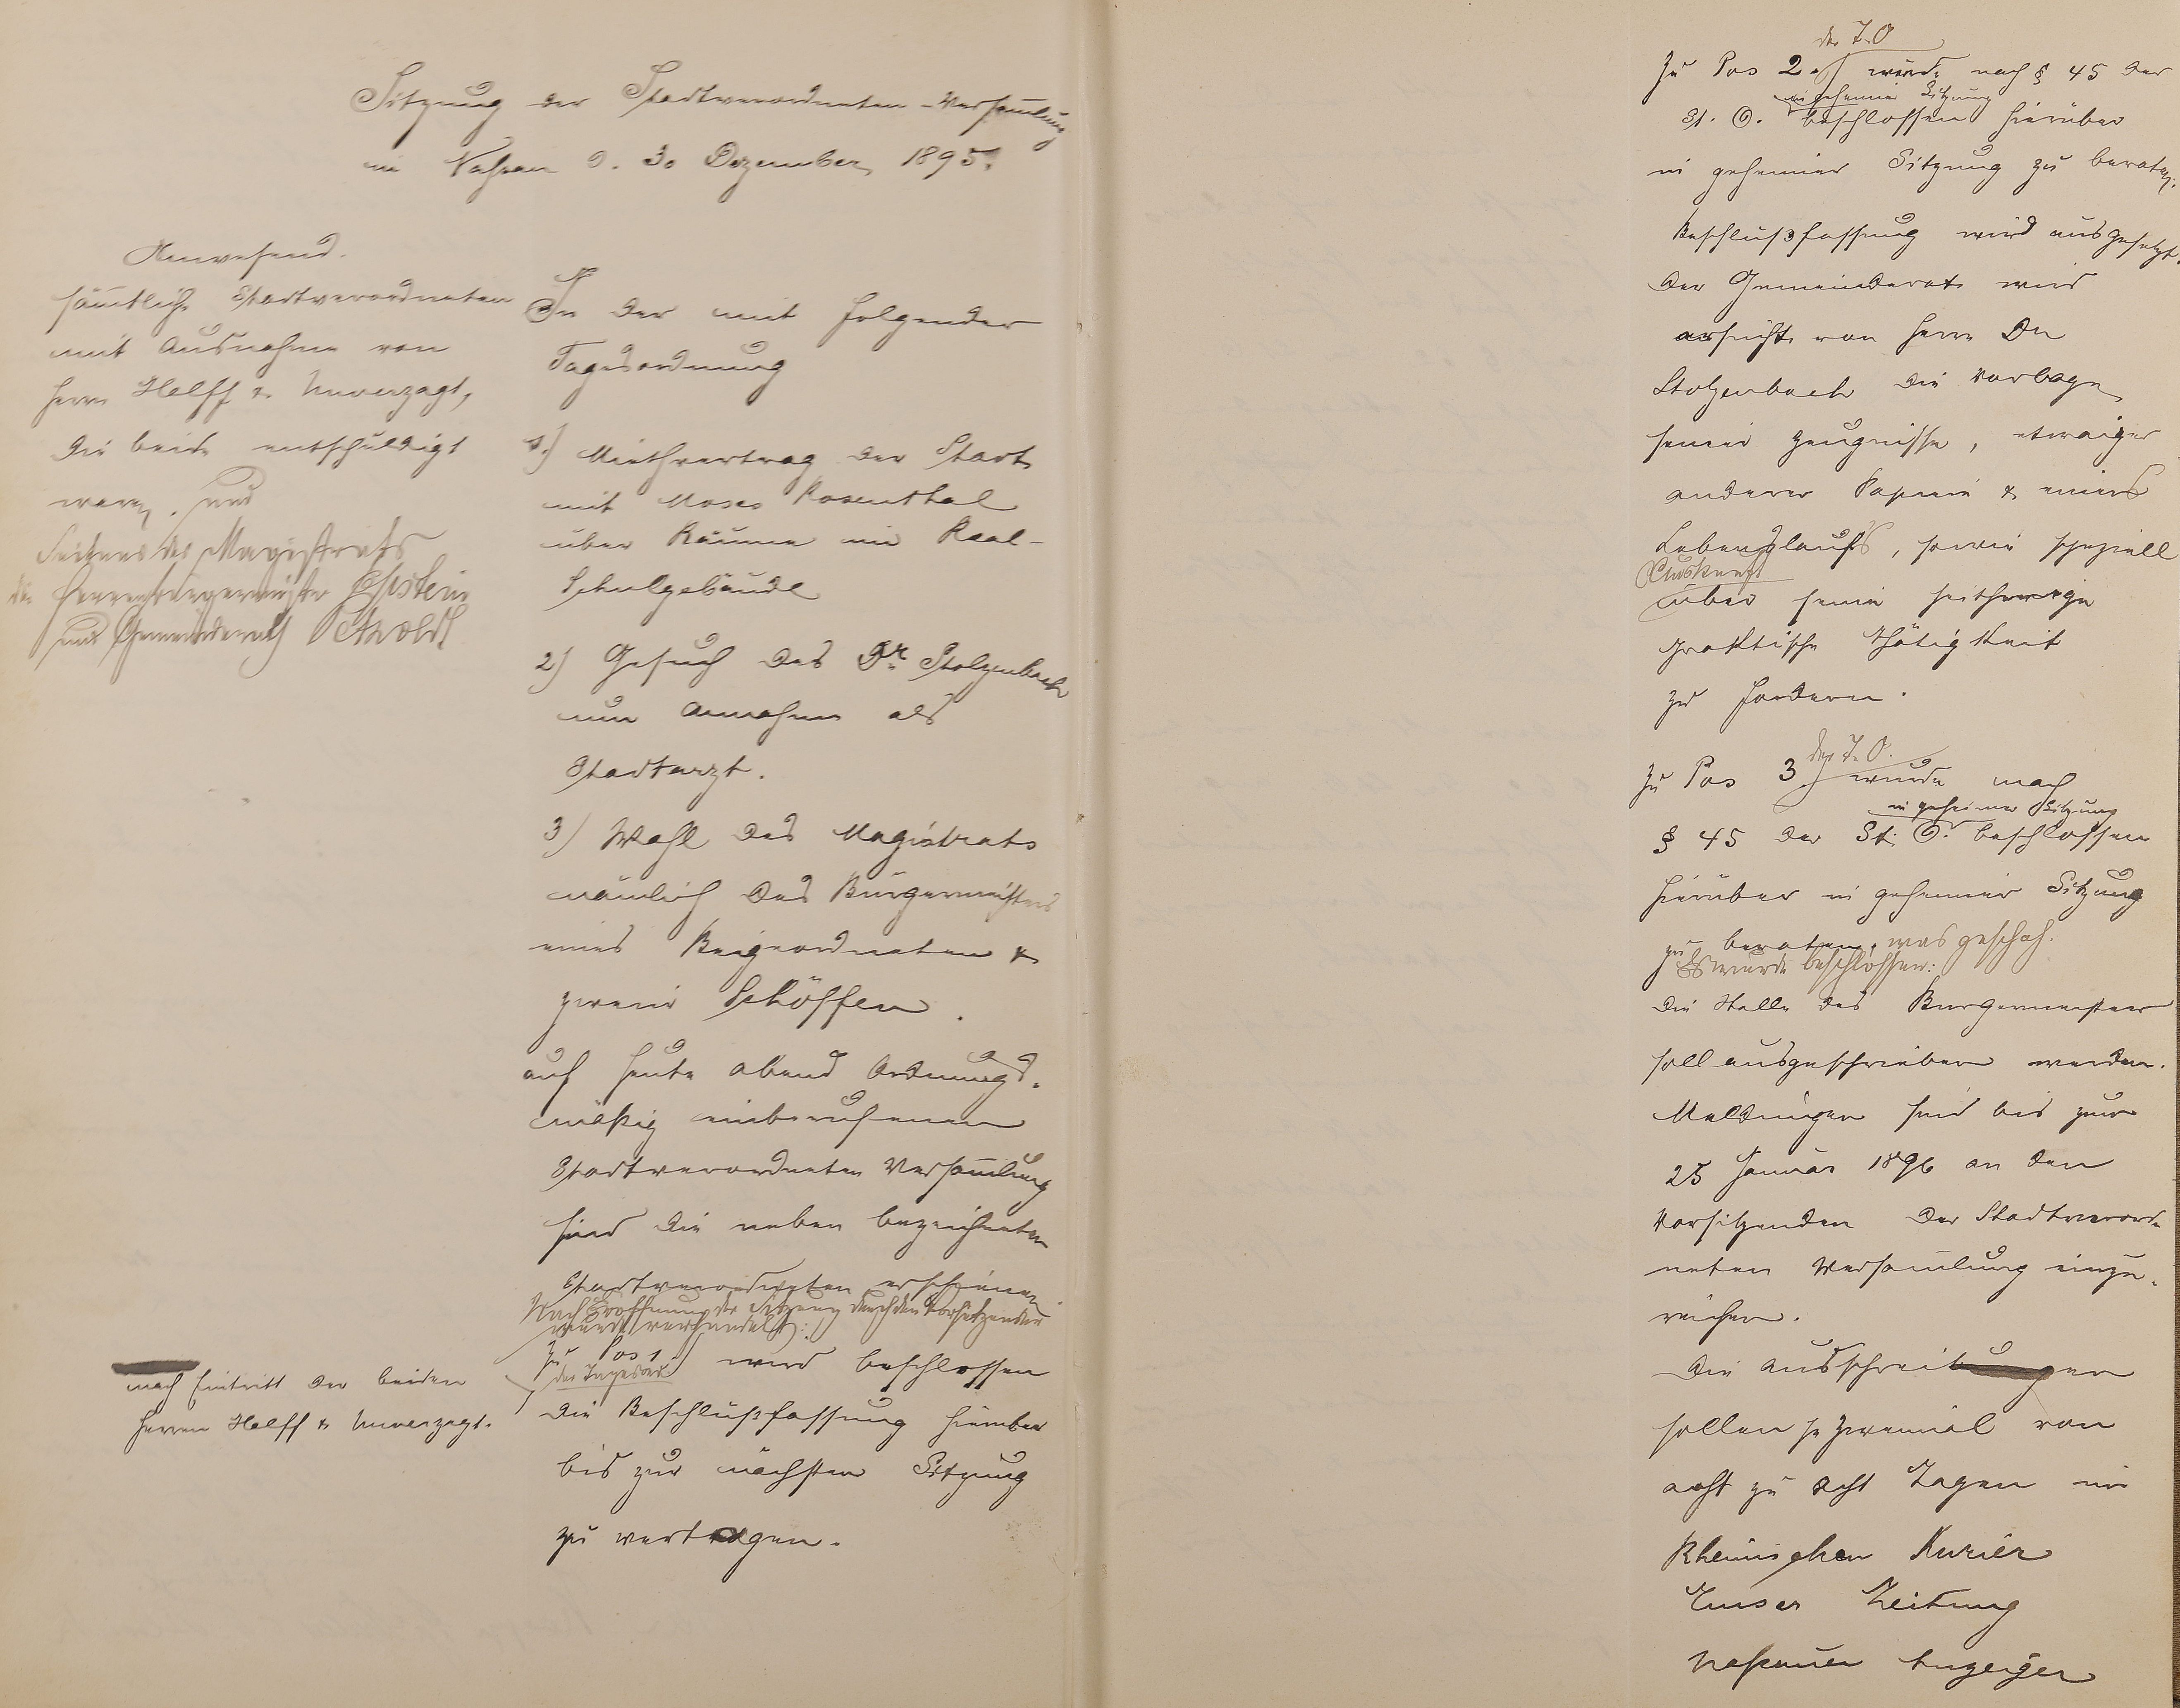 Sitzung der Stadtverordneten-Versam̅lung
in Nassau d. 30 Dezember 1895.
Anwesend.
säm̅tliche Stadtverordneten
mit Ausnahme von
Herrn Helff u. Unverzagt,
die beide entschuldigt
waren. und
Seitens des Magistrats
die Herren Bürgermeister Epstein
und Gemeinderath
In der mit folgender
Tagesordnung
1.) Miethvertrag der Stadt
mit Moses Rosenthal
über Räume im Real-
Schulgebäude
2) Gesuch des Dr. Stolzenbach
um Annahme als
Stadtarzt.
3) Wahl des Magistrats
nämlich des Bürgermeisters
eines Beigeordneten &
zweier Schöffen.
auf heute abend Ordnungs-
mäßig einberufenen
Stadtverordneten Versam̅lung
sind die neben bezeichneten
Stadtverordneten erschienen.
Nach Eröffnung der Sitzung durch den Vorsitzenden
wurde verhandelt:
Zu Pos 1) wird beschlossen
der Tagesord.
nach Eintritt der beiden
Herren Helff & Unverzagt.
die Beschlußfassung hierüber
bis zur nächsten Sitzung
zu vertagen.
der T.O
Zu Pos 2 wurde nach § 45 der
in geheimer Sitzung
St. O. beschlossen hierüber
in geheimer Sitzung zu beraten.
Beschlußfassung wird ausgesetzt.
Der Gemeinderat wird
ersucht von Herrn Dr
Stolzenbach die Vorlage
seiner Zeugnisse, etwaiger
anderer Papiere & eines
Lebenslaufs, sowie speziell
Auskunft
über seine seitherige
praktische Thätigkeit
zu fordern.
der T. O.
Zu Pos 3 wurde nach
in geheimer Sitzung
§ 45 der St. O. beschlossen
hierüber in geheimer Sitzung
zu beraten, was geschah.
Es wurde beschlossen:
Die Stelle des Bürgermeister
soll ausgeschrieben werden.
Meldungen sind bis zum
25 Januar 1896 an den
Vorsitzenden der Stadtverord-
neten Versam̅lung einzu-
reichen.
Die Ausschreibungen
sollen je zweimal von
acht zu acht Tagen im
Rheinischen Kurier
Emser Zeitung
Nassauer Anzeiger